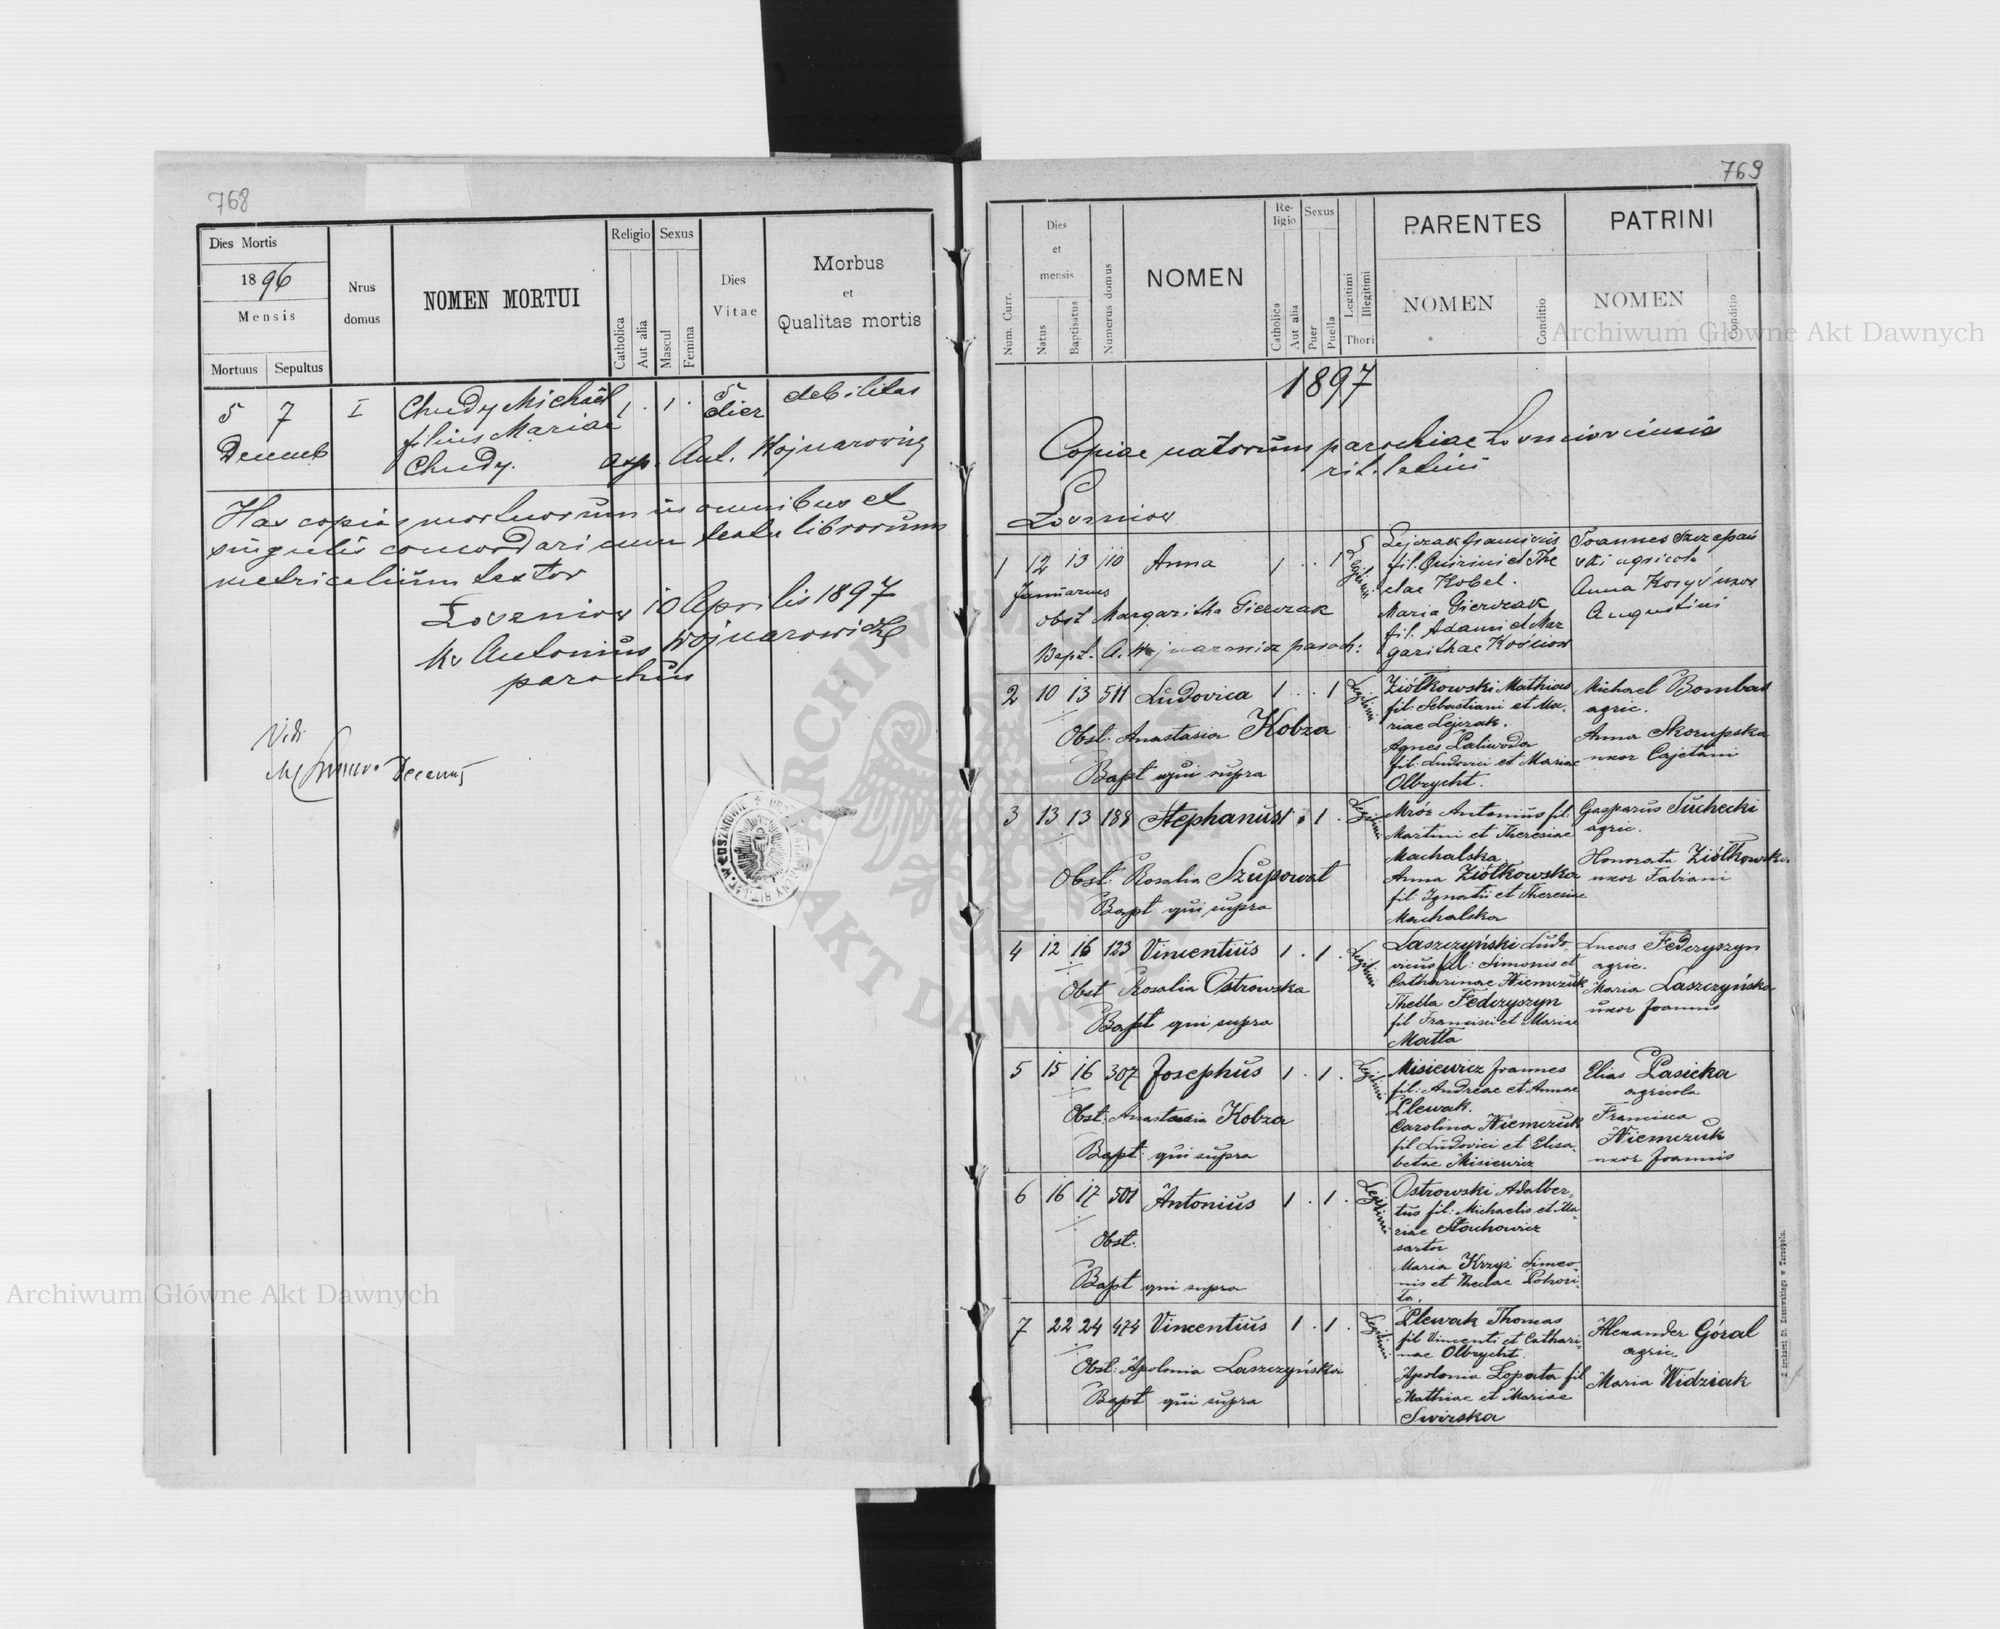 768
Dies Mortis
1896
Mensis
Mortuus Sepultus
Nrus domus
NOMEN MORTUI
Religio
Catholica
Aut alia
Sexus
Mascul
Femina
Dies Vitae
Morbus
et
Qualitas mortis
5 7 I Chudy Michael 1 . 1 . 5 debilitas
filius Mariae dier
Decemb Chudy. asp. Ant. Wojnarowicz
Has copias mortuorum in omnibus et
singulis concordari cum textu librorum
metricalium testor
Łozeniow 10 Aprilis 1897
Antonius Wojnarowicz
parochus
Vidi
Decanus
769
Num. Curr.
Dies
et
mensis
Natus
Baptisatus
Numerus domus
NOMEN
Religio
Catholica
Aut alia
Sexus
Puer
Puella
Legitimi
Illegitimi
Thori
PARENTES
NOMEN
Conditio
PATRINI
NOMEN
Conditio
1897
Copiae natorum parochiae
rit. latini
1 12 13 110 Anna 1 . . 1
Januarius
Obst Margaritha Gierczak
Bapt. A. Wojnarowicz paroch:
fil. Quirini et The
clae Kobel.
Maria Gierczak
fil. Adami et Mar
garithae
Joannes Szczepań
ski agricola
Anna uxor
Augustini
2 10 13 511 Ludovica 1 . . 1 Legitimi
Obst: Anastasia Kobza
Bapt qui supra
Ziółkowski Mathias
fil: Sebastiani et Ma-
riae Lejczak.
Agnes Paliwoda
fil: Ludovici et Mariae
Olbrycht.
Michael Bombas
agric.
Anna Skorupska
uxor Cajetani
3 13 13 188 Stephanus 1 . 1 . Legitimi
Obst: Rosalia Szupowat
Bapt qui supra
Mróz Antonius fil.
Martini et Theresiae
Machalska
Anna Ziółkowska
fil: Ignatii et Theresiae
Machalska
Gasparus Suchecki
agric.
Honorata Ziółkowska
uxor Fabiani
4 12 16 123 Vincentius 1 . 1 . Legitimi
Obst Rosalia Ostrowska
Bapt qui supra
Laszczyński Ludo-
vicus fil: Simonis et
Catharinae Niemczuk
Thecla Fedczyszyn
fil Francisci et Mariae
Matla
Lucas Fedczyszyn
agric.
Maria Laszczyńska
uxor Joannis
5 15 16 307 Josephus 1 . 1 . Legitimi
Obst: Anastasia Kobza
Bapt: qui supra
Misiewicz Joannes
fil: Andreae et Annae
Plewak.
Carolina Niemczuk
fil Ludovici et Elisa-
betae Misiewicz
Elias Pasieka
agricola
Francisca
Niemczuk
uxor Joannis
6 16 17 501 Antonius 1 . 1 . Legitimi
Obst:
Bapt qui supra
Ostrowski Adalber-
tus fil: Michaelis et Ma-
riae Stachowicz
sartor
Maria Krzyż Simeo-
nis et Theclae Pohori-
ła.
7 22 24 474 Vincentius 1 . 1 . Legitimi
Obst: Apolonia Laszczyńska
Bapt qui supra
Plewak Thomas
fil Vincenti et Cathari-
nae Olbrycht.
Apolonia Łopata fil
Mathiae et Mariae
Swirska
Alexander Góral
agric.
Maria Widziak
Archiwum Główne Akt Dawnych
Archiwum Główne Akt Dawnych